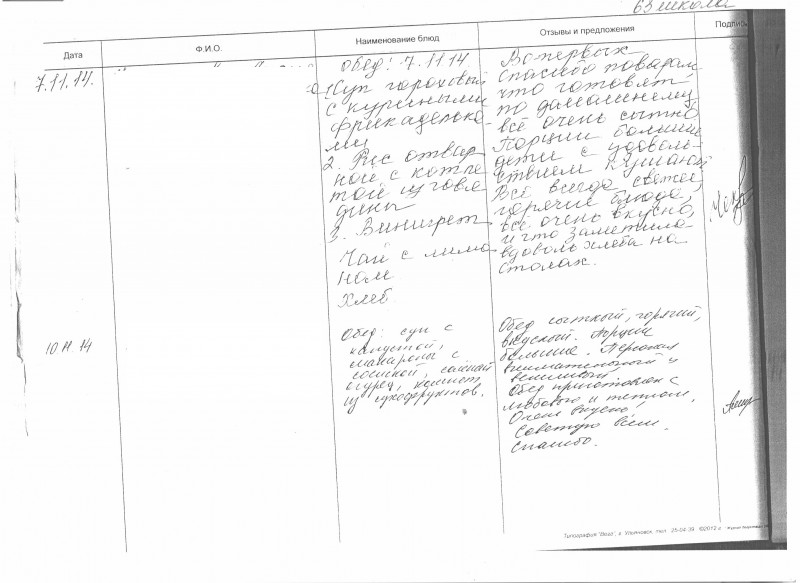 63 школа
Дата
Ф.И.О.
Наименование блюд
Отзывы и предложения
7.11.14.
Обед: 7.11 14
1. Суп гороховый
с куриными
фрикаделька-
ми
2. Рис отвар-
ной с котле-
той из говя
дины
3. Винигрет
Чай с лимо-
ном
Хлеб
Во первых
спасибо поварам
что готовят
по домашнему,
всё очень сытно
Порции большие
дети с удоволь-
ствием кушают
Всё всегда свежее,
горячие блюда,
всё очень вкусно,
и что заметила-
вдоволь хлеба на
столах.
10.11.14
Обед: суп с
капустой,
макароны с
сосиской, солёный
огурец, компот
из сухофруктов.
Обед сытный, горячий,
вкусный. Порции
большие. Персонал
внимательный и
вежливый.
Обед приготовлен с
любовью и теплом,
Очень вкусно
Советую всем.
Спасибо.
Типография "Вега", г. Ульяновск, тел.: 25-04-39 ©2012 г.